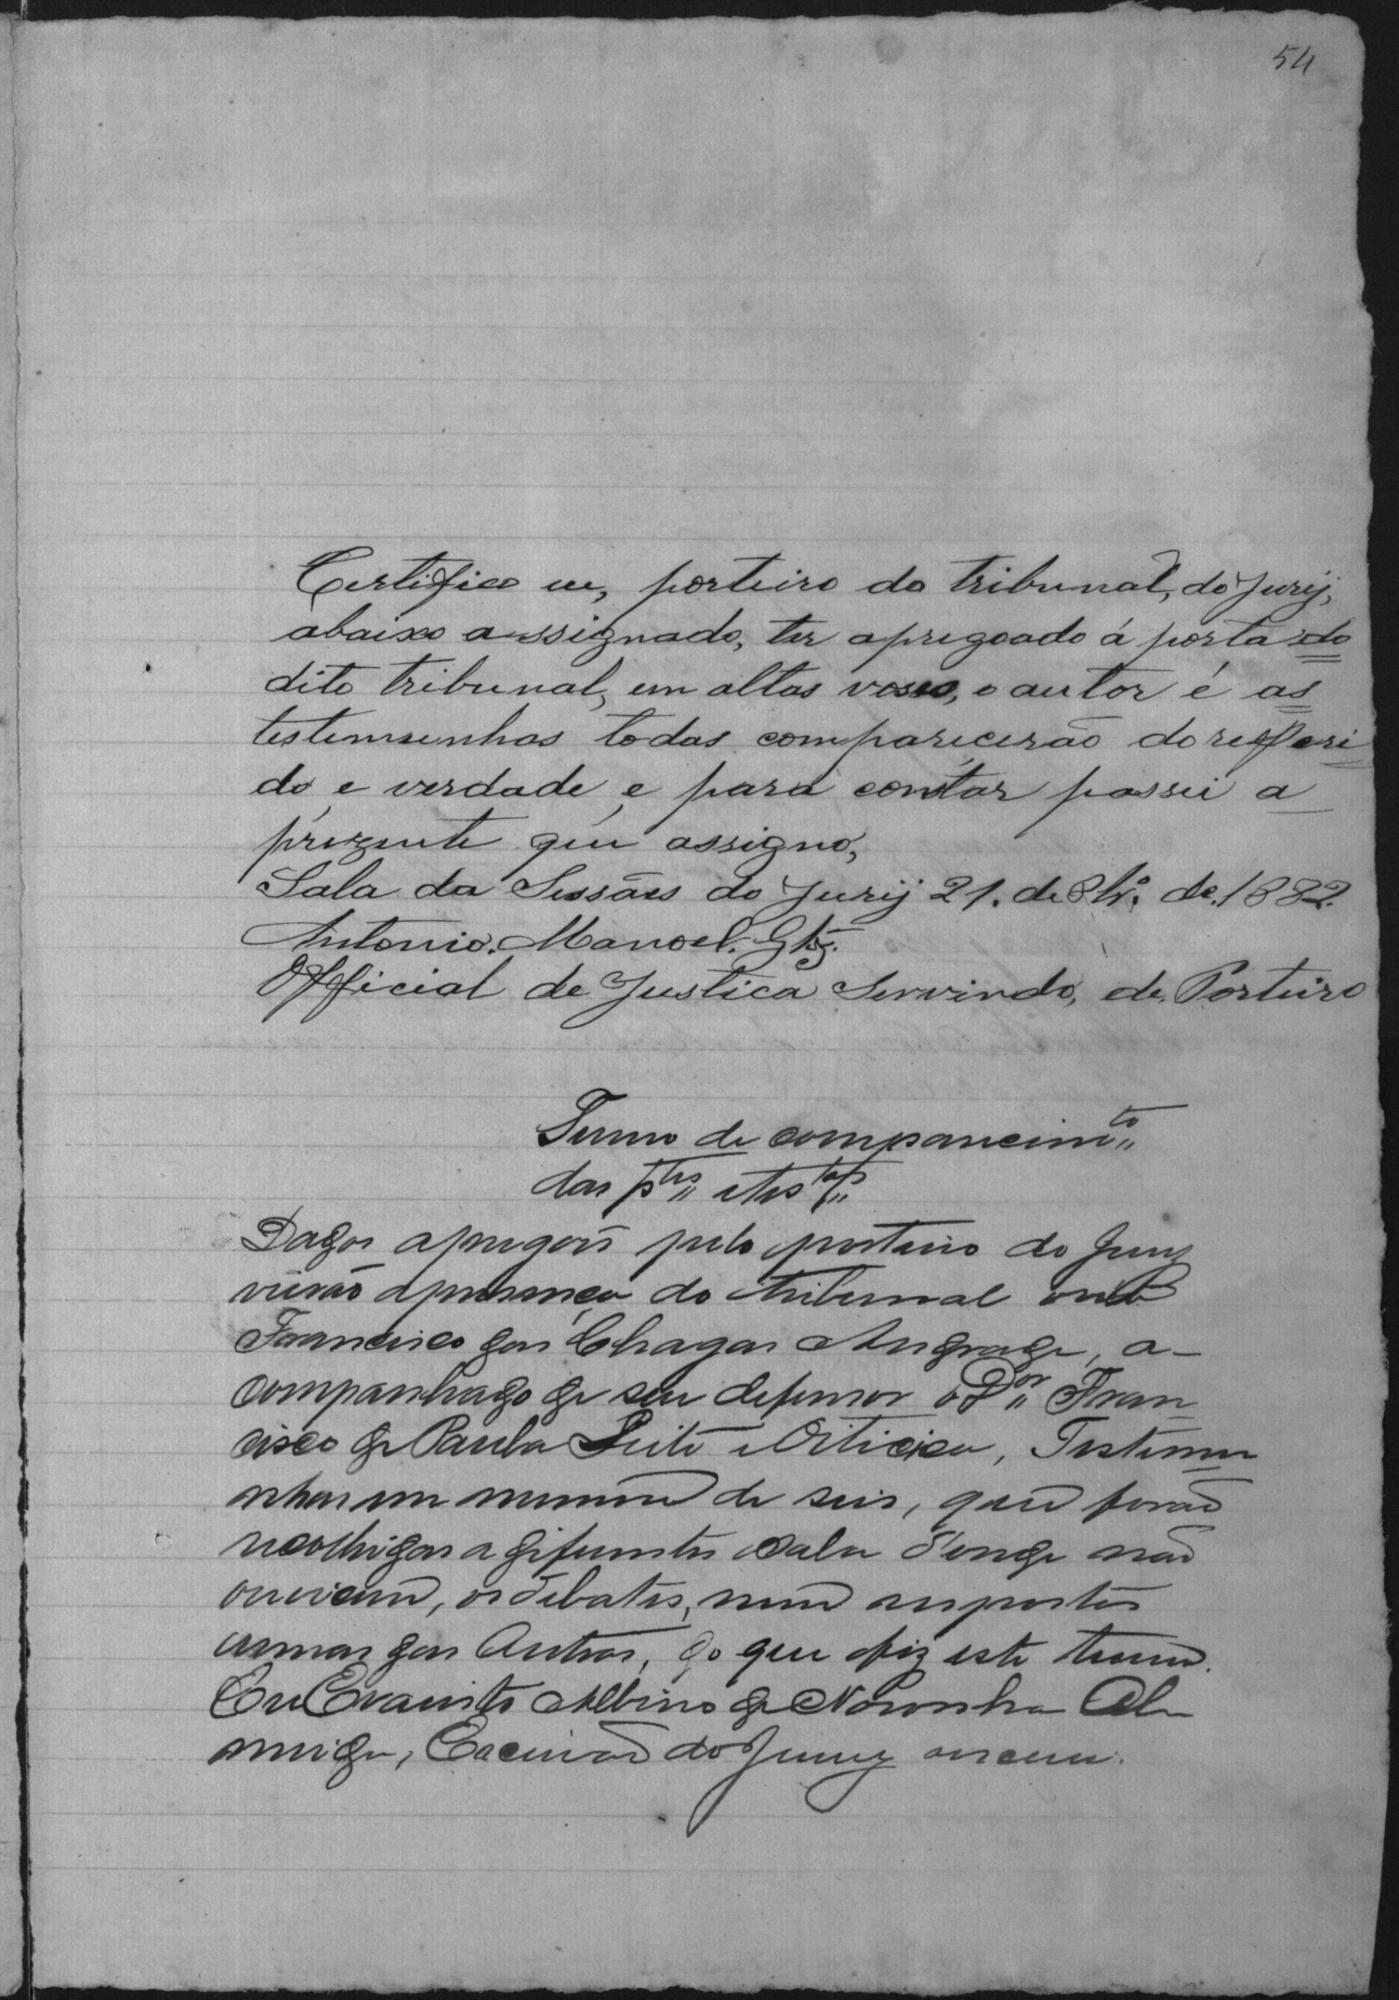 54
Certifico eu, porteiro do tribunal, do Jurij,
abaixo assignado, ter apregoado á porta do
dito tribunal, em altas voses, o autor é as
testemunhas todas comparecerão do referi
do e verdade e para contar passei a
prezente que assigno,
Sala da Sessões do Jurij 21. de 8br.º de.1882.
Antonio. Manoel. Glz.
Official de Justica Servindo, de, Porteiro
Termo de comparecimto
das ptes e tes tas
Dados apregois pelo porteiro do Jury
vierão apresença do tribunal o reo
Francisco das Chagas Andrade, a-
companhado de seu defensor o Dor Fran
cisco de Paula Leite e Oiticica, Testemu
nhas em numero de seis, que forão
recolhidas a differentes sala d'onde não
ouvicem, os debates, nem respostas
umas das Outras, do que fiz este termo.
Eu Evaristo Albino de Noronha Al
meida, Escrivão do Jury escrevi.